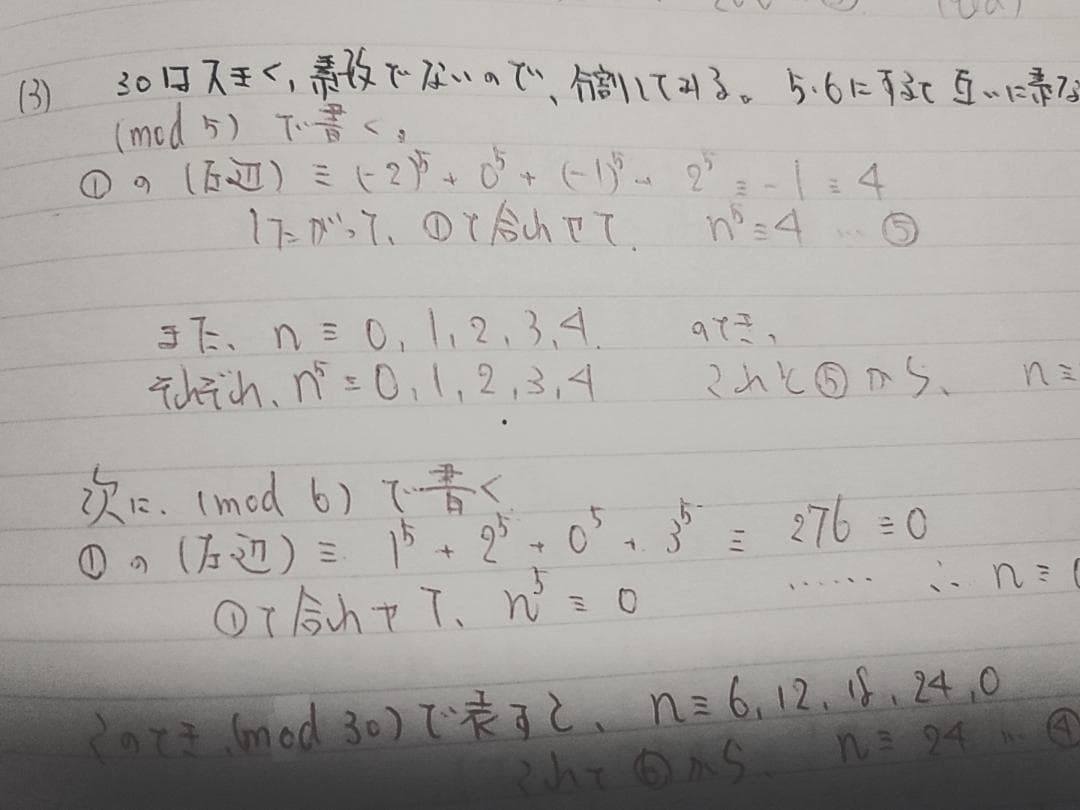 (3) 30は大きく、素数でないので、分割してみる。 5・6にすると互いに素な
(mod 5) で書く。
①の(左辺) ≡ (-2)⁵ + 0⁵ + (-1)⁵ + 2⁵ ≡ -1 ≡ 4
したがって、①と合わせて、 n⁵ ≡ 4 … ⑤
また、 n ≡ 0, 1, 2, 3, 4. のとき、
それぞれ、 n⁵ ≡ 0, 1, 2, 3, 4 これと⑤から、 n ≡
次に、 (mod 6) で書く
①の(左辺) ≡ 1⁵ + 2⁵ + 0⁵ + 3⁵ ≡ 276 ≡ 0
①と合わせて、 n⁵ ≡ 0 …… ∴ n ≡ 0
このとき、(mod 30)で表すと、 n ≡ 6, 12, 18, 24, 0
これと⑥から、 n ≡ 24 … ④